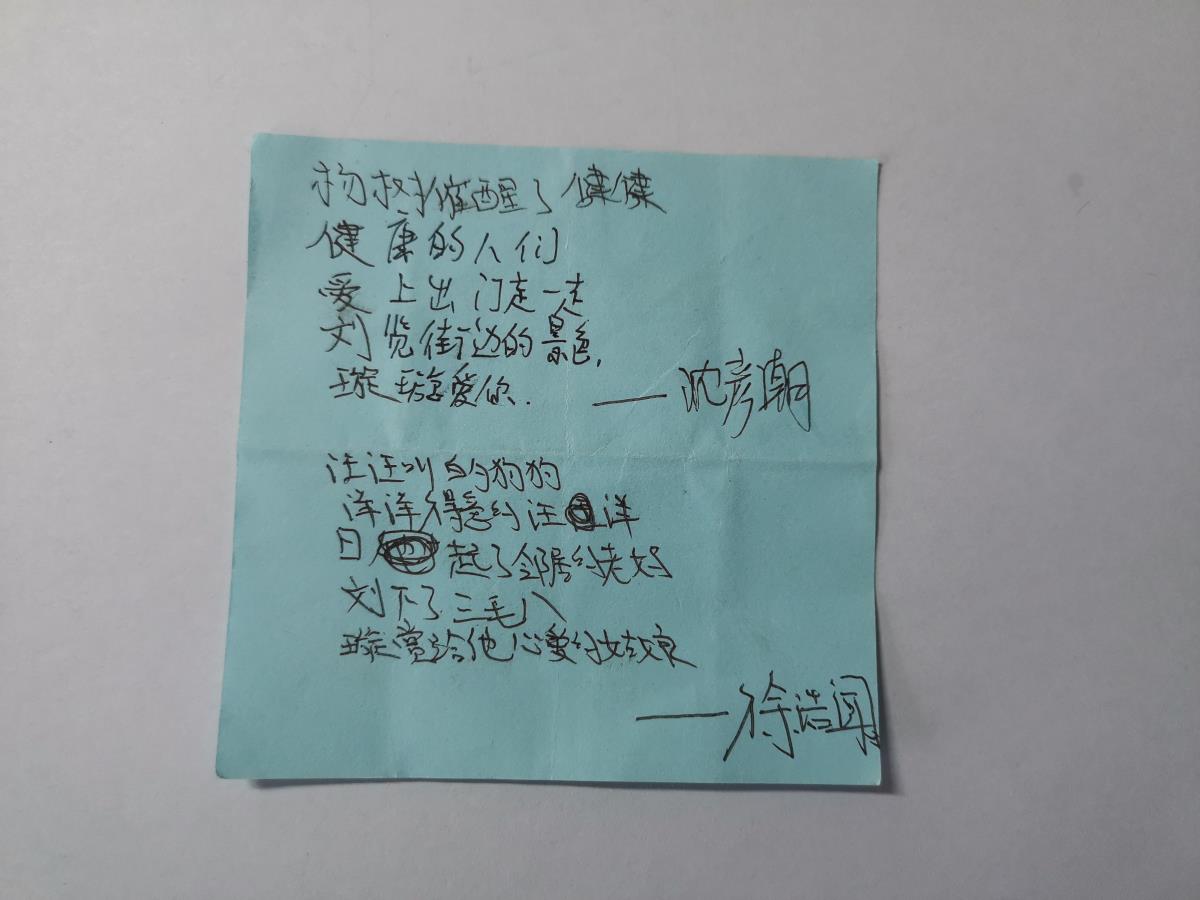 杨树摧醒了健健
健康的人们
爱上出门走一走
刘览街边的景色.
璇璇爱你.
——沈彦潮
汪汪叫的狗狗
洋洋得意的汪洋
日起了邻居的老妈
刘下了三毛八
璇赏给他心爱的姑娘
——徐浩闻